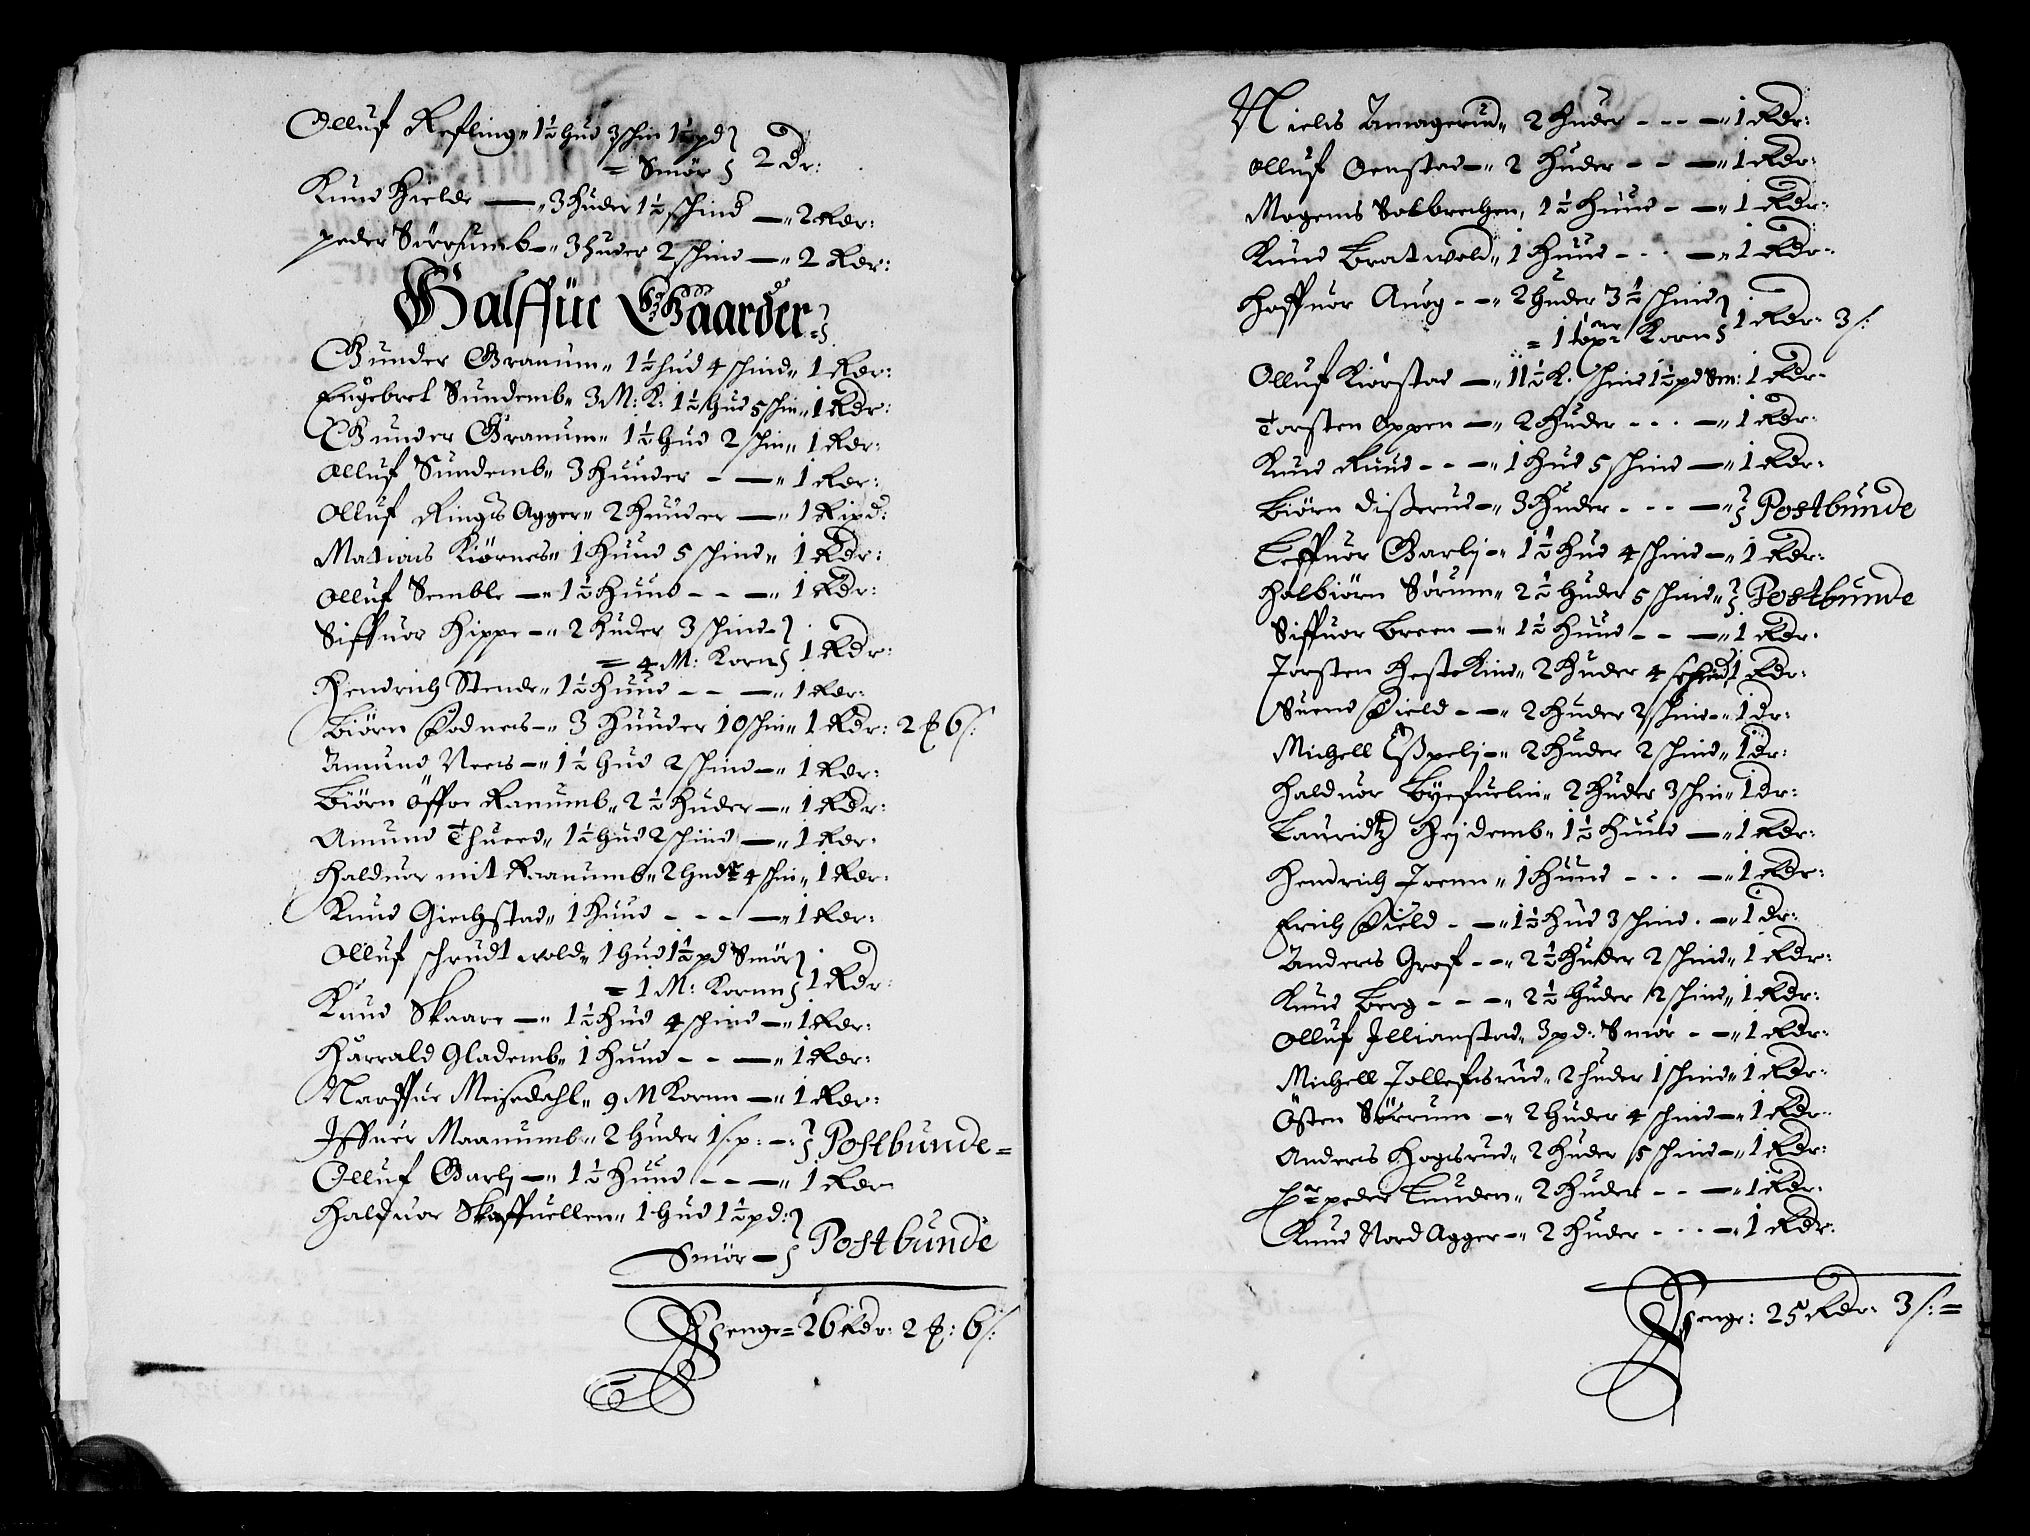 Olluf Refling„ 1½ hud 3 schin 1½ pd } 2 Dr:
= Smör }
Knud Hielde — „ 3 Huder 1½ schind — „ 2 Rdr:
peder Sörrumb — „ 3 huder 2 schind — „ 2 Rdr:
Halffue Gaarder
Gunder Granum„ 1½ hud 4 schind„ 1 Rdr:
Engebret Sundemb„ 3 M: K: 1½ hud 5 schin„ 1 Rdr:
Gunder Granum„ 1½ Hud 2 schin„ 1 Rdr:
Olluf Sundemb„ 3 Hunder - — „ 1 Rdr:
Olluf Rings Agger„ 2 Huuder — „ 1 Ripd:
Matias Kiörnes„ 1 Huud 5 schind„ 1 Rdr:
Olluf Semble — „ 1½ Huud - - — „ 1 Rdr:
Siffuor Hippe — „ 2 Huder 3 schind - } 1 Rdr:
= 4 M: Korn }
Hendrich Stende„ 1½ Huud - - — „ 1 Rdr:
Biörn Fodnes — „ 3 Huuder 10 schin„ 1 Rdr: 2 ₰ 6 s:
Amund Nees — „ 1½ hud 2 schind — „ 1 Rdr:
Biörn öffre Ranumb„ 2½ Huder — „ 1 Rdr:
Amund Thueed„ 1½ hud 2 schind — „ 1 Rdr:
Halduor mit Raanumb„ 2 hudr 4 schin„ 1 Rdr:
Knud Giechstad„ 1 Huud - - - — „ 1 Rdr:
Olluf schrudt wold„ 1 hud 1½ pd Smör } 1 Rdr:
= 1 M: Kornn }
Knud Skaare — „ 1½ Hud 4 schind — „ 1 Rdr:
Harrald Glademb„ 1 Huud - - — „ 1 Rdr:
Narffue Meisedahl„ 9 M Kornn — „ 1 Rdr:
Iffuer Maanumb„ 2 Huder 1 s. p: — : } Postbunde =
Olluf Garlj — „ 1½ Huud - - — „ 1 Rdr
Halduor Skaffuellen„ 1 Hud 1½ pd: } Postbunde
Smör — }
Penge = 26 Rdr: 2 ₰: 6 s:
Niels Amagerud„ 2 Huder - - - — „ 1 Rdr:
Olluf Oenstad — „ 2 Huder - - — „ 1 Rdr:
Mogens Solbrechen, 1½ Huud - — „ 1 Rdr:
Knud Bratwold„ 1 Huud - - - — „ 1 Rdr:
Haffuor Auog - — „ 2 huder 3½ schind } 1 Rdr: 3 s:
Korn }
Olluf Kiörstad — „ 11½ K. schind 1½ pd Sm: 1 Rdr:
Torsten Oppen — „ 2 Huder - - - — „ 1 Rdr:
Knud Ruud - - — „ 1 Hud 5 schind — „ 1 Rdr:
Biörn Disserud — „ 3 Huder - - - — „ } Postbunde
Leffuor Garlj — „ 1½ Hud 4 schind — „ 1 Rdr:
Halbiörn Sörum„ 2½ Huder 5 schind„ } Postbunde
Siffuor Breen — „ 1½ Huud - - — „ 1 Rdr:
Torsten Hestekind„ 2 Huder 4 schind 1 Rdr:
Suend Field - — „ 2 Huder 2 schind — „ 1 Dr:
Michell Espelj — „ 2 Huder 2 schind„ 1 Dr:
Halduor Byefuelin„ 2 Huder 3 schin„ 1 Dr:
Lauridtz Hejdemb„ 1½ Huud — „ 1 Rdr:
Hendrich Joenn„ 1 Huud - - - — „ 1 Rdr:
Erich Field - — „ 1½ Hud 3 schind. — „ 1 Dr:
Anders Graf - — „ 2½ Huder 2 schind„ 1 Rdr:
Knud Berg - - — „ 2½ Huder 2 schind„ 1 Rdr:
Olluf Illianstad„ 3 pd: Smör - — „ 1 Rdr:
Michell Tollefsrud„ 2 huder 1 schind„ 1 Rdr:
Östen Sörrum — „ 2 Huder 4 schind — „ 1 Rdr:
Anders Hogsrud„ 2 Huder 5 schind — „ 1 Rdr:
Hr peder Lunden„ 2 Huder - - — „ 1 Rdr:
Knud Nord Agger — „ 2 Huder - - - — „ 1 Rdr:
Penge: 25 Rdr: 3 s: =